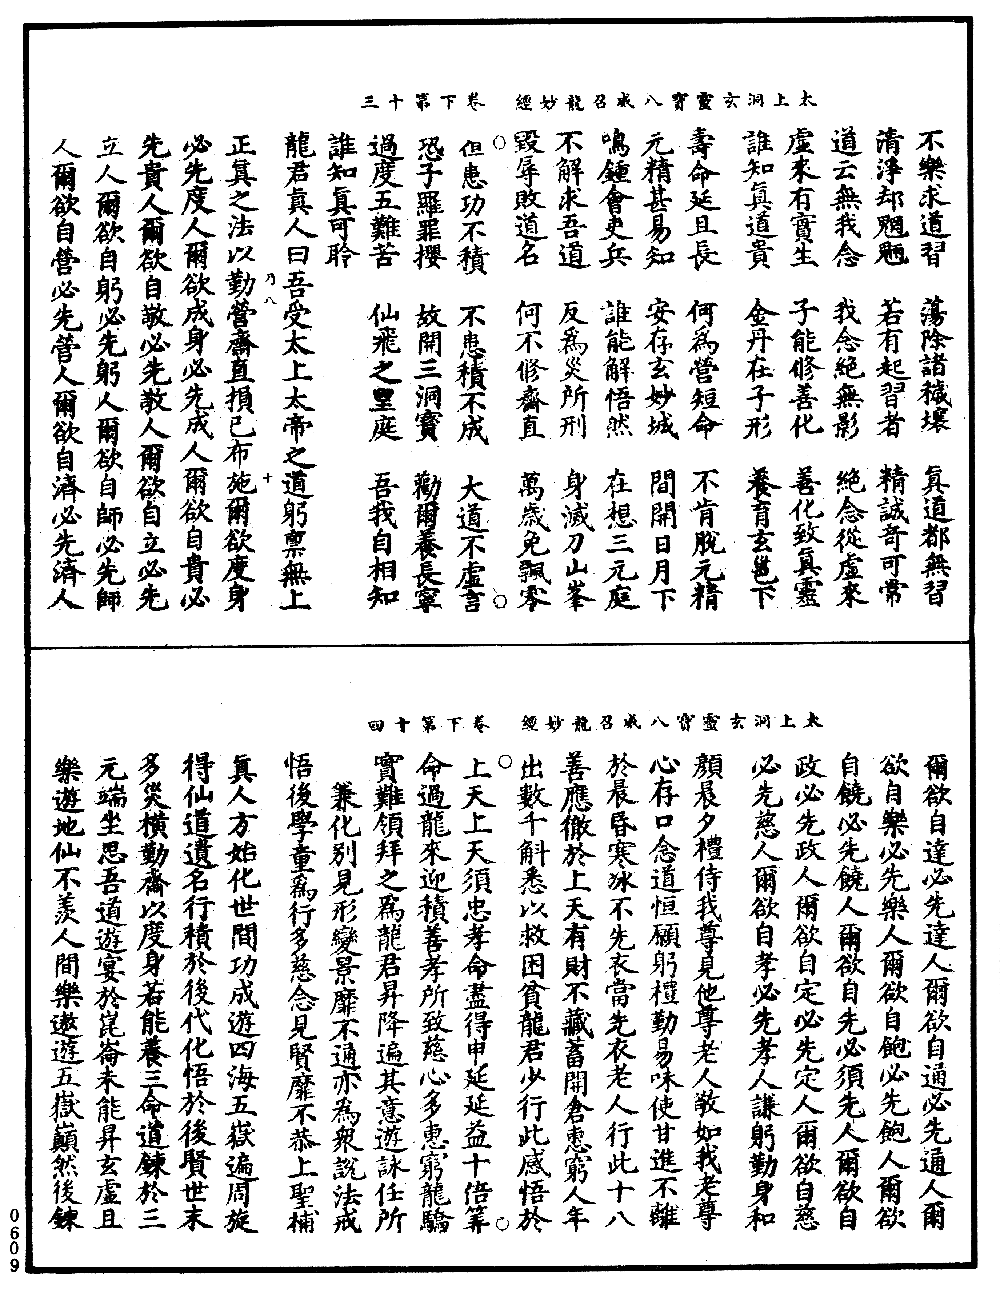 太上洞玄靈寶八威召龍妙經　卷下第十三
不樂求道習　蕩除諸穢壞　真道都無習
清淨却魍魎　若有起習者　精誠奇可常
道云無我念　我念絕無影　絕念從虛來
虛來有實生　子能修善化　善化致真靈
誰知真道貴　金丹在子形　養育玄邕下
壽命延且長　何為營短命　不肯脫元精
元精甚易知　安存玄妙城　間開日月下
鳴鍾會吏兵　誰能解悟然　在想三元庭
不解求吾道　反為災所刑　身滅刀山峯
毀辱敗道名　何不修齋直　萬歲免飄零
但患功不積　不患積不成　大道不虛言
恐子羅罪攖　故開三洞寶　勸爾養長寧
過度五難苦　仙飛之里庭　吾我自相知
誰知真可聆
龍君真人曰吾受太上太帝之道躬稟無上
正真之法以勤營齋直損己布施爾欲度身
必先度人爾欲成身必先成人爾欲自貴必
先貴人爾欲自敬必先敬人爾欲自立必先
立人爾欲自躬必先躬人爾欲自師必先師
人爾欲自營必先營人爾欲自濟必先濟人
乃八
十
太上洞玄靈寶八威召龍妙經　卷下第十四
爾欲自達必先達人爾欲自通必先通人爾
欲自樂必先樂人爾欲自飽必先飽人爾欲
自饒必先饒人爾欲自先必須先人爾欲自
政必先政人爾欲自定必先定人爾欲自慈
必先慈人爾欲自孝必先孝人謙躬勤身和
顏晨夕禮侍我尊見他尊老人敬如我老尊
心存口念道恒願躬禮勤易味使甘進不離
於晨昏寒冰不先衣當先衣老人行此十八
善應徹於上天有財不藏蓄開倉惠窮人年
出數千斛悉以救困貧龍君少行此感悟於
上天上天須忠孝命盡得申延延益十倍筭
命過龍來迎積善孝所致慈心多惠窮龍驕
實難領拜之為龍君昇降遍其意遊詠任所
兼化別見形變景靡不通亦為衆說法戒
悟後學童為行多慈念見賢靡不恭上聖補
真人方始化世間功成遊四海五嶽遍周旋
得仙道遺名行積於後代化悟於後賢世末
多災橫勤齋以度身若能養三命道鍊於三
元端坐思吾道遊宴於崑崙未能昇玄虛且
樂遊地仙不羨人間樂遨遊五嶽巔然後鍊
0609